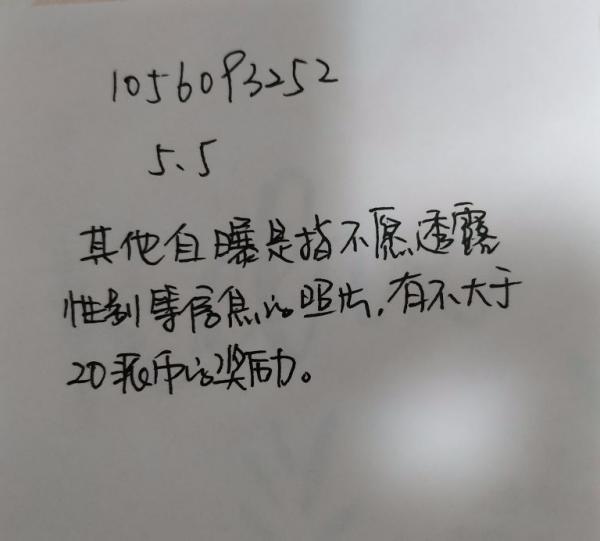 1056093252
5、5
其他自曝是指不愿透露
性别等信息的照片,有不大于
20派币的奖励。